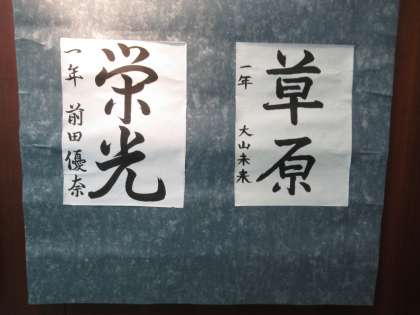 草原
一年 大山未来
栄光
一年 前田優奈